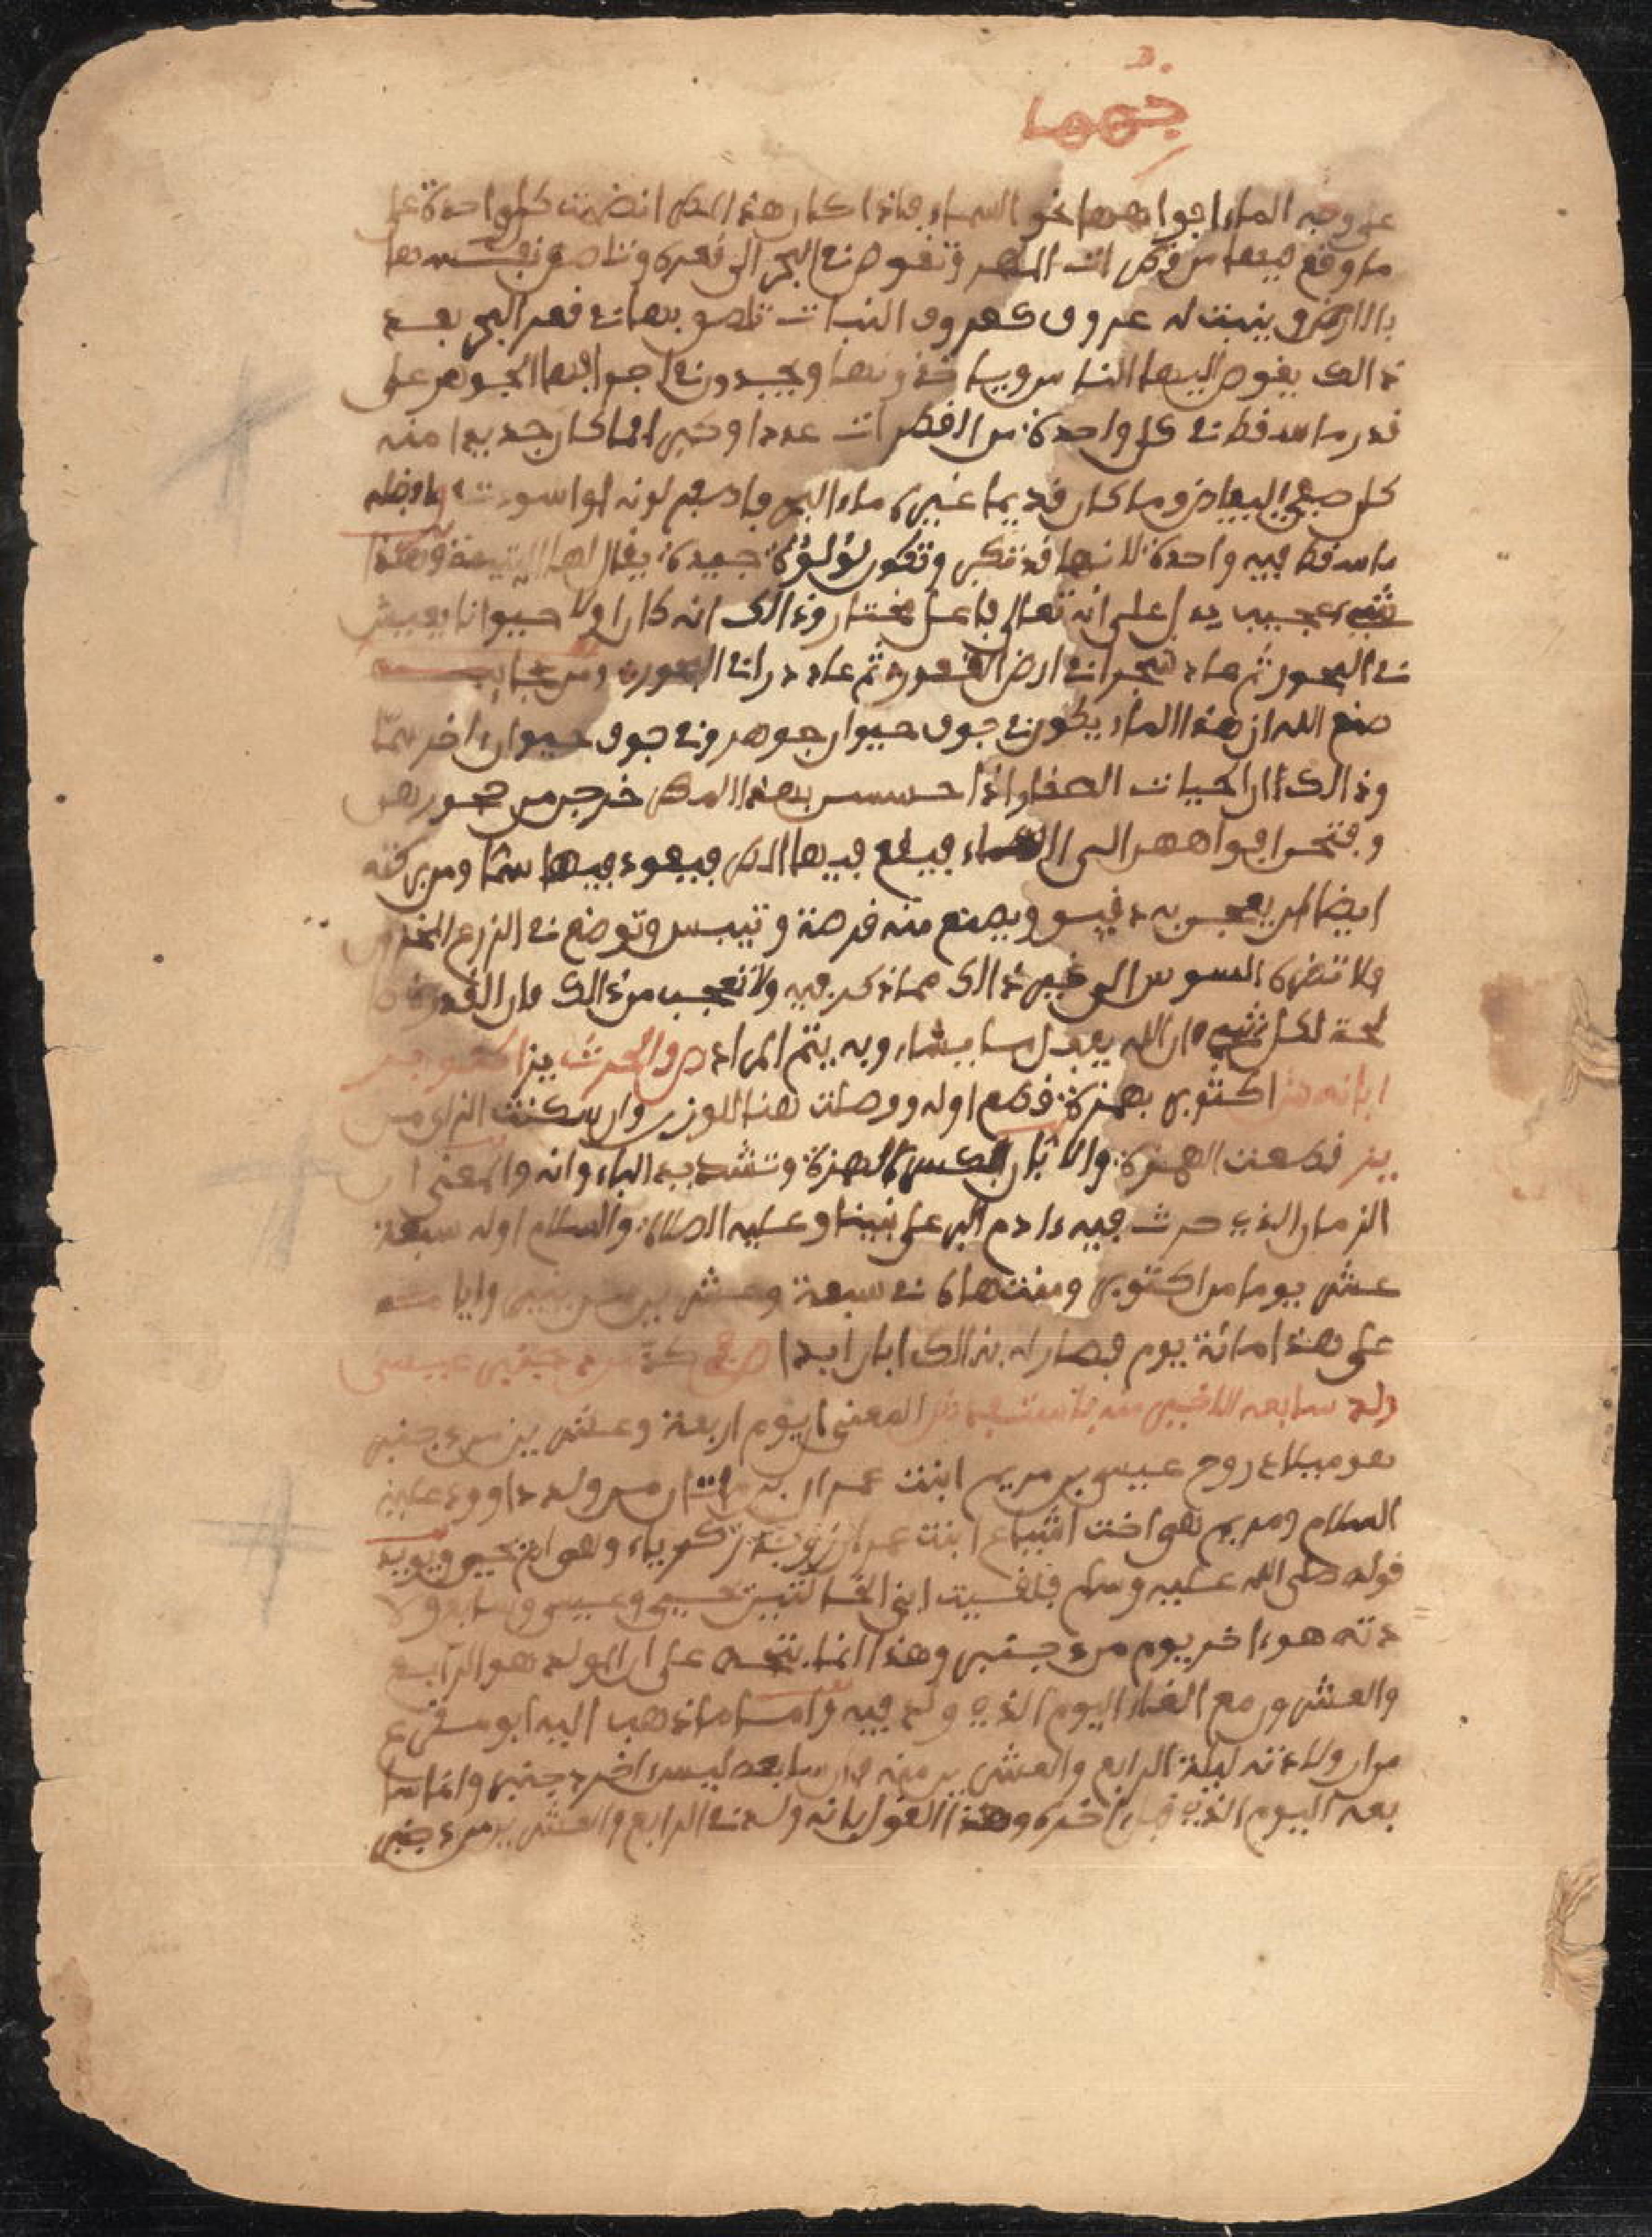 على وجه الماء افواهها نحو السماء فاذا كان هذا المطر انضمت كل واحدة على
ما وقع فيها من قطرات المطر وتغوص في البحر الى قعره وتلاصق نفسها
بالارض وينبت له عروق كعروق النبات تلصق بها في قعر البحر بعد
ذالك يغوص اليها الناس وياخذونها ويجدون في اجوافها الجوهر على
قدر ما سقط في كل واحدة من القطرات عددا وكبرا فما كان جديدا منه
كان صفي البياض وما كان قديما غيره ماء البحر فاصفر لونه او اسودت وافضله
ما سقط فيه واحدة لانها قد تكبر وتكون لؤلؤة جيدة يقال لها اليتيمة وهذا
شيء عجيب يدل على انه تعالى فاعل مختار وذالك انه كان اولا حيوانا يعيش
في البحور ثم عاد شجرا في ارض القعور ثم عاد درا في النحور ومن عجايب
صنع الله ان هذا الماء يكون في جوف حيوان جوهر وفي جوف حيوان اخر سما
وذالك ان الحيات الصفار اذا حسسن بهذا المطر خرجن من جحورهن
وفتحن افواههن الى السماء فيقع فيها المطر فيعود فيها سما ومن بركته
ايضا ان يعجن به دقيق ويصنع منه قرصة وتيبس وتوضع في الزرع المخزون
فلا تضره السوس الى غير ذالك مما ذكر فيه ولا تعجب من ذالك فان القدرة صا
لحة لكل شيء فان الله يفعل ما يشاء وبه يتم المراد صو الحرث يز اكتوبر
ابانه اكتوبر بهمزة قطع اوله ووصلت هنا للوزن وان سكنت الزاي من
يز قطعت الهمزة والابان بكسر الهمزة وتشديد الباء وانه والمعنى ان
الزمان الذي حرث فيه ءادم البر على نبينا وعليه الصلاة والسلام اوله سبعة
عشر يوما من اكتوبر ومنتهاه في سبعة وعشرين من ينير وايامه
على هذا مائة يوم فصار له بذالك ابان ابدا في كد من دجنبر عيسى
ولد سابعه للاخير منه المعنى ان يوم اربعة وعشرين من دجنبر
هو ميلاد روح عيسى بن مريم ابنت عمران بن ماتان من ولد داوود عليه
السلام ومريم هي اخت اشياع ابنت عمران زوجة زكرياء وهو ام يحيى ويويد
قوله صلى الله عليه وسلم فلقيت ابني الخالتين يحيى وعيسى وسابع ولا
دته هو ءاخر يوم من دجنبر وهذا انما يتجه على ان المولد هو الرابع
والعشرون مع الغاء اليوم الذي ولد فيه واما ما ذهب اليه ابو مقرع
من ان ولادته ليلة الرابع والعشرين منه فان سابعه ليس ءاخر دجنبر وانما
بعد اليوم الذي قبل ءاخره وهذا القول بانه ولد في الرابع والعشرين من دجنبر